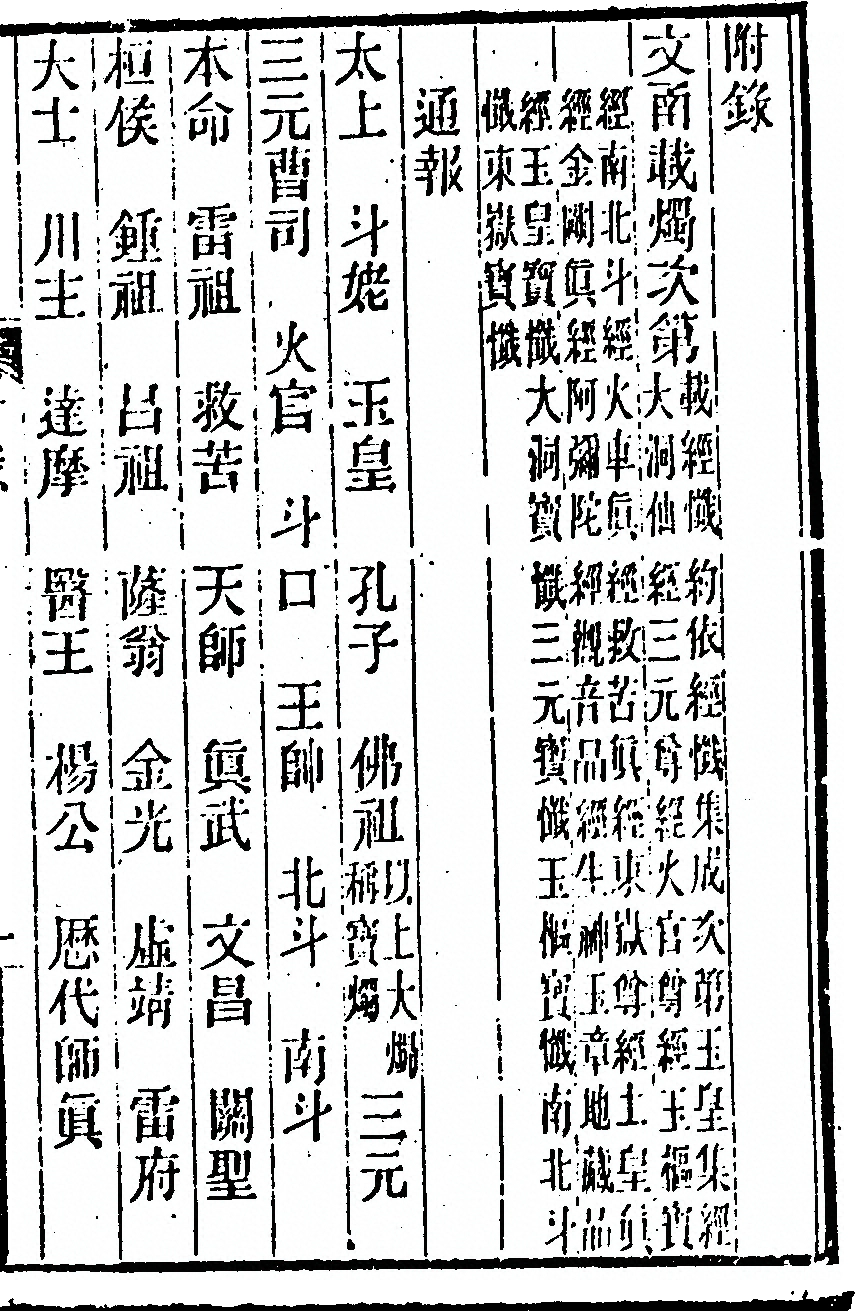 附錄
文南載燭次第
載經懺約依經懺集成次第玉皇集經
大洞仙經三元尊經火官尊經玉樞寶
經南北斗經火車眞經救苦眞經東嶽尊經土皇眞
經金剛眞經阿彌陀經觀音品經生神玉章地藏品
經玉皇寶懺大洞寶懺三元寶懺玉樞寶懺南北斗
懺東嶽寶懺
通報
太上 斗姥 玉皇 孔子 佛祖 以上大燭稱寶燭 三元
三元曹司 火官 斗口 王帥 北斗 南斗
本命 雷祖 救苦 天師 眞武 文昌 關聖
桓侯 鍾祖 呂祖 薩翁 金光 虛靖 雷府
大士 川主 達摩 醫王 楊公 歷代師眞